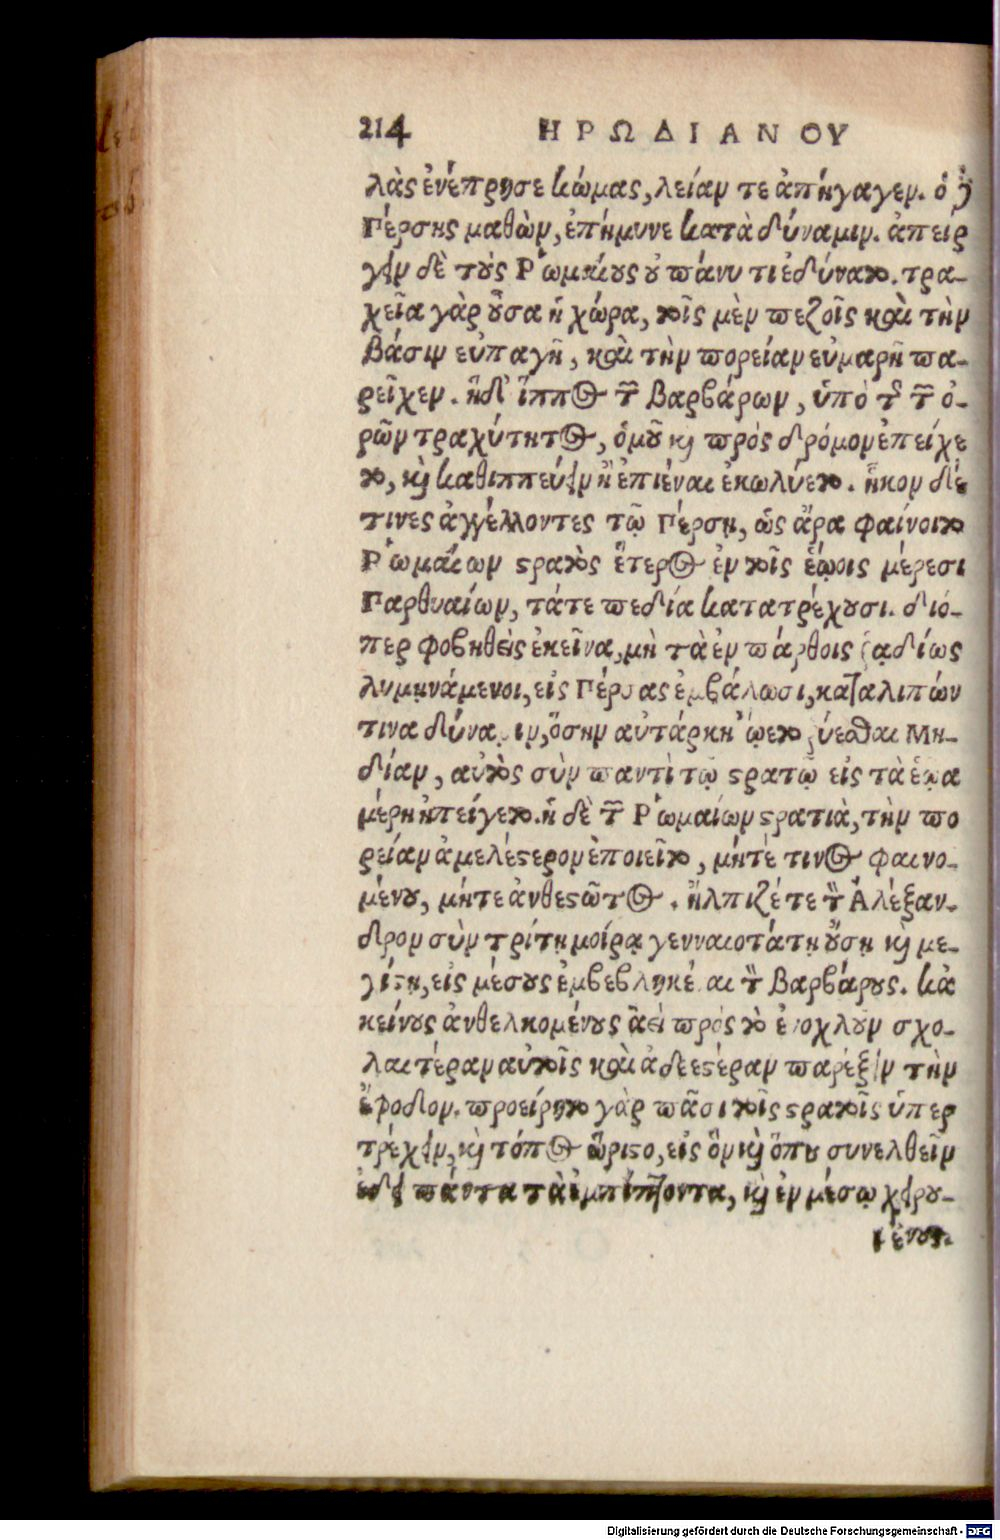 214 ΗΡΩΔΙΑΝΟΥ
λὰς ἐνέπρησε κώμας, λείαν τε ἀπήγαγεν. ὁ δὲ
Πέρσης μαθὼν, ἐπήμυνε κατὰ δύναμιν. ἀπείρ
γειν δὲ τοὺς Ῥωμαίους οὐ πάνυ τι ἐδύνατο. τρα-
χεῖα γὰρ οὖσα ἡ χώρα, τοῖς μὲν πεζοῖς καὶ τὴν
βάσιν εὐπαγῆ, καὶ τὴν πορείαν εὐμαρῆ πα-
ρεῖχεν. ἡ δ' ἵππος τῶν βαρβάρων, ὑπὸ τῆς τῶν ὀ-
ρῶν τραχύτητος, ὁμοῦ καὶ πρὸς δρόμον ἐπείχε
το, καὶ καθιππεύειν ἢ ἐπιέναι ἐκωλύετο. ἧκον δέ
τινες ἀγγέλλοντες τῷ Πέρσῃ, ὡς ἄρα φαίνοιτο
Ῥωμαίων στρατὸς ἕτερος ἐν τοῖς ἑῴοις μέρεσι
Παρθυαίων, τάτε πεδία κατατρέχουσι. διό-
περ φοβηθεὶς ἐκεῖνα, μὴ τὰ ἐν πάρθοις ῥᾳδίως
λυμηνάμενοι, εἰς Πέρσας ἐμβάλωσι, καταλιπών
τινα δύναμιν, ὅσην αὐτάρκη ᾤετο ῥύεσθαι Μη-
δίαν, αὐτὸς σὺν παντὶ τῷ στρατῷ εἰς τὰ ἑῷα
μέρη ἠπείγετο. ἡ δὲ τῶν Ῥωμαίων στρατιὰ, τὴν πο
ρείαν ἀμελέστερον ἐποιεῖτο, μήτέ τινος φαινο-
μένου, μήτε ἀνθεστῶτος. ἤλπιζέ τε τὸν Ἀλέξαν-
δρον σὺν τρίτῃ μοίρᾳ γενναιοτάτῃ οὔσῃ καὶ με-
γίστῃ, εἰς μέσους ἐμβεβληκέναι τοὺς βαρβάρους. κἀ
κείνους ἀνθελκομένους ἀεὶ πρὸς τὸ ἐνοχλοῦν σχο-
λαιτέραν αὐτοῖς καὶ ἀδεεστέραν παρέξειν τὴν
ἔφοδον. προείρητο γὰρ πᾶσι τοῖς στρατοῖς ὑπερ
τρέχειν, καὶ τόπος ὥριστο, εἰς ὃν καὶ ὅπου συνελθεῖν
ἔδει πάντα τὰ ἐμπίπτοντα, καὶ ἐν μέσῳ χειρου-
μένους.
Digitalisierung gefördert durch die Deutsche Forschungsgemeinschaft - DFG